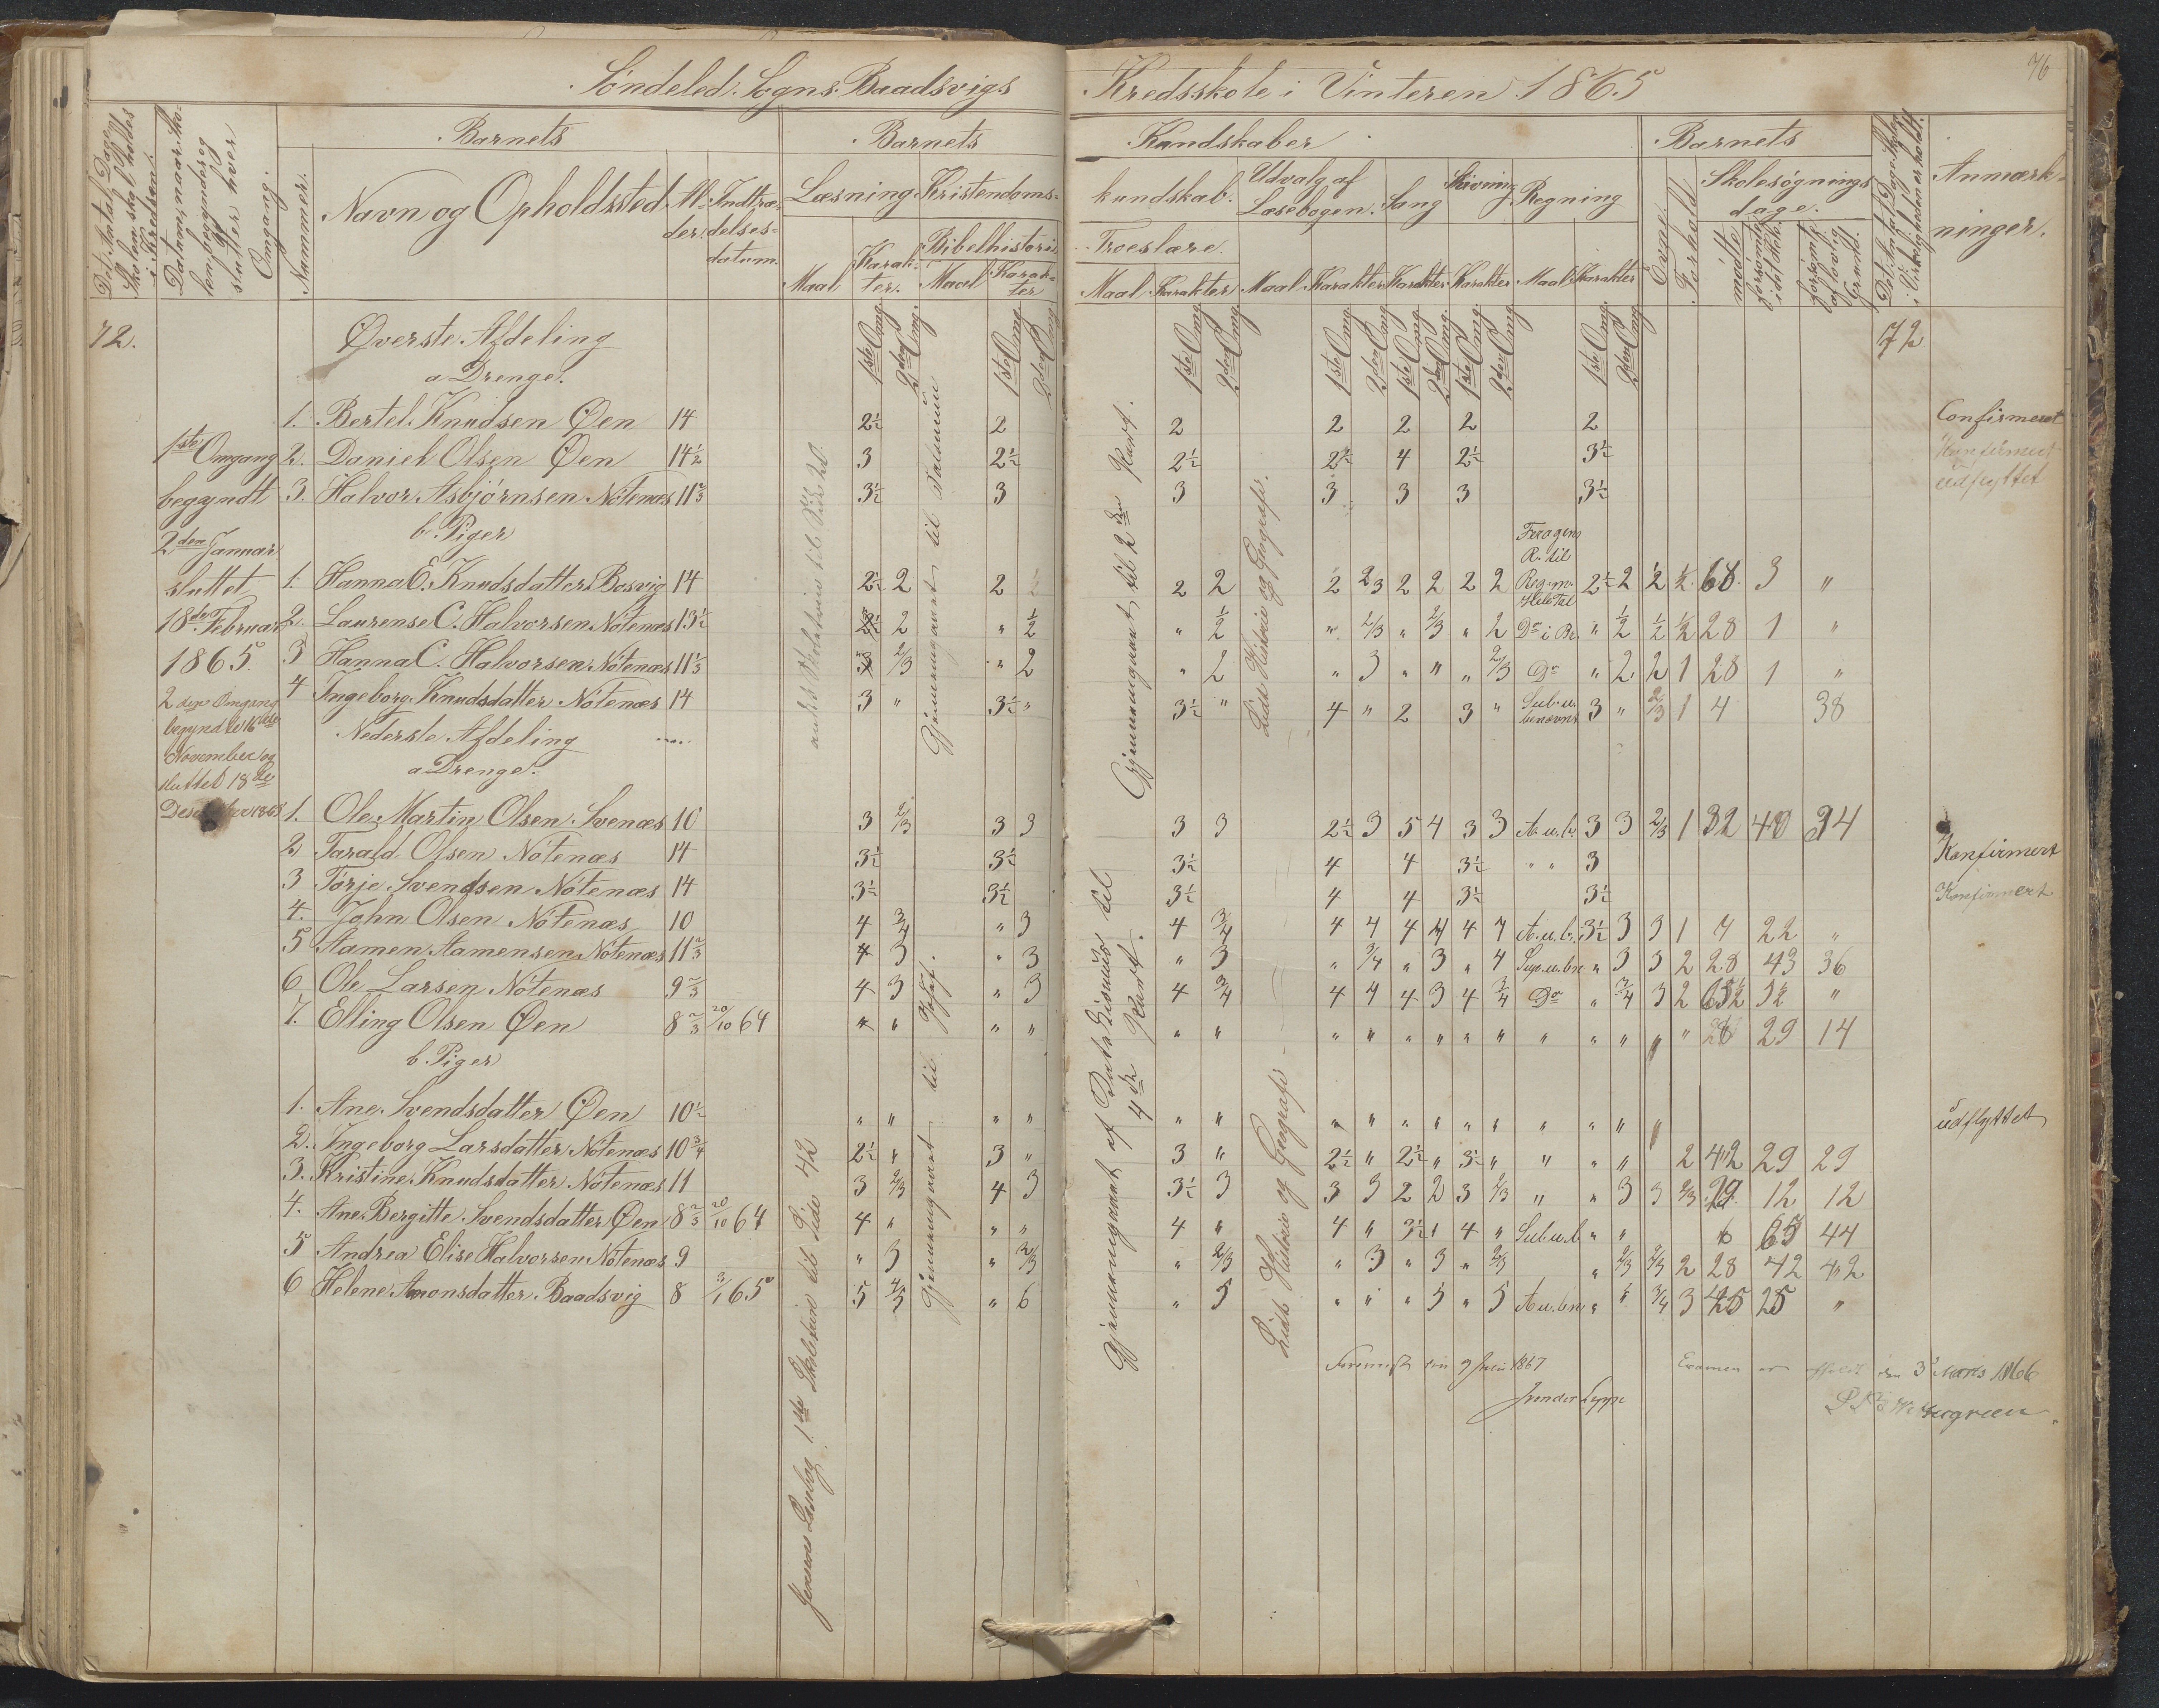 Søndeled Sogns Baadsvigs Kredsskole i Vinteren 1865
76
Det Antal Dage Skolen skal holdes i Kredsen.
Datum, naar Skolen begynder og slutter hver Omgang.
Barnets
Nummer.
Navn og Opholdssted
Alder.
Indtrædelsesdatum.
Barnets Kundskaber
Læsning
Maal
Karakter.
Kristendomskundskab.
Bibelhistorie
Maal
Karakter
Troeslære.
Maal
Karakter
Udvalg af Læsebogen.
Maal
Karakter
Sang
Karakter
Skrivning
Karakter
Regning
Maal
Karakter
Barnets
Evne
Forhold.
Skolesøgningsdage.
mødte
forsømte i det Hele.
forsømte af lovlig Grund.
Det Antal Dage Skolen i Virkeligheden er holdt.
Anmærkninger.
72.
72
Øverste Afdeling
a Drenge.
1ste Omg. 2den Omg. 1ste Omg. 2den Omg. 1ste Omg. 2den Omg. 1ste Omg. 2den Omg. 1ste Omg. 2den Omg. 1ste Omg. 2den Omg. 1ste Omg. 2den Omg.
1ste Omgang
begyndt
2den Januar
sluttet
18de Februar
1865.
2den Omgang
begyndte 16de
November og
sluttet 18de
1. Bertel Knudsen Øen 14 2½ 2 2 2 2 2 2 Confirmeret
2. Daniel Olsen Øen 14½ 3 2½ 2½ 2½ 4 2½ 3½ Konfirmert
3. Halvor Asbjørnsen Nótenæs 11⅔ 3½ 3 3 3 3 3 3½ udflyttet
b. Piger
1. Hanna E. Knudsdatter Bosvig 14 2½ 2 2 2 2 2 2/3 2 2 2 2 2½ 2 2 ½ 68 3 "
2. Laurense C. Halvorsen Nótenæs 13½ 2 " ½ " ½ " 2/3 " 2/3 " 2 Do i Br. " ½ ½ ½ 28 1 "
3 Hanna C. Halvorsen Nótenæs 11⅓ 2/3 " 2 " 2 " 3 " " " 2/3 Do " 2 2 1 28 1 "
4 Ingeborg Knudsdatter Nótenæs 14 3 " 3½ " 3½ " 4 " 2 3 " Sub. u. benævnt 3 " 2/3 1 4 38
Nederste Afdeling
a Drenge.
1. Ole Martin Olsen Svenæs 10 3 2/3 3 3 3 3 2½ 3 5 4 3 3 A. u. b. 3 3 2/3 1 32 40 34
2 Tarald Olsen Nótenæs 14 3½ 3½ 3½ 4 4 3½ " " 3 Konfirmert
3 Tørje Svendsen Nótenæs 14 3½ 3½ 3½ 4 4 3½ 3½ Konfirmert
4. John Olsen Nótenæs 10 4 3/4 " 3 4 3/4 4 4 4 4 4 4 A. u. b. 3½ 3 3 1 7 22 "
5 Aamen Aamensen Nótenæs 11⅔ 4 3 " 3 " 3 " 3/4 " 3 " 4 " 3 3 2 28 43 36
6 Ole Larsen Nótenæs 9⅔ 4 3 " 3 4 3/4 4 4 4 3 4 3/4 Do " 3/4 3 2 "
7. Elling Olsen Øen 8⅔ 20/10 64 " " " " " " " " " " " " " " " " " 29 14
b. Piger
1. Ane Svendsdatter Øen 10½ " " " " " " " " " " " " " " " " udflyttet
2. Ingeborg Larsdatter Nótenæs 10¾ 2½ " 3 " 3 " 2½ " 2½ " 3½ " " " " 2 42 29 29
3. Kristine Knudsdatter Nótenæs 11 3 2/3 4 3 3½ 3 3 3 2 2 3 2/3 " " 3 3 2/3 29 12 12
4. Ane Bergitte Svendsdatter Øen 8⅔ 20/10 64 4 " " " 4 " 4 " 3½ 4 " Sub u. b " " 6 65 44
5 Andrea Elise Halvorsen Nótenæs 9 " 3 " 2/3 " 2/3 " 3 " 3 " 2/3 " 2/3 2/3 2 28 42 42
6 Helene Amonsdatter Baadsvig 8 3/1 65 5 4/5 " 6 " 5 " " " 5 " 5 A u. bn " " 3/4 3 25 25 "
Jensens Læsebog 1ste Skoletrin til Side 42
andet Skoletrin til Side
Gjennemgaaet til
Gjennemgaaet til Josef.
Gjennemgaaet til 2den Part.
Gjennemgaaet af til 4de Part.
Lidt Historie og Geografi.
Lidt Historie og Geografi
1867
Examen er afholdt den 3 Marts 1866